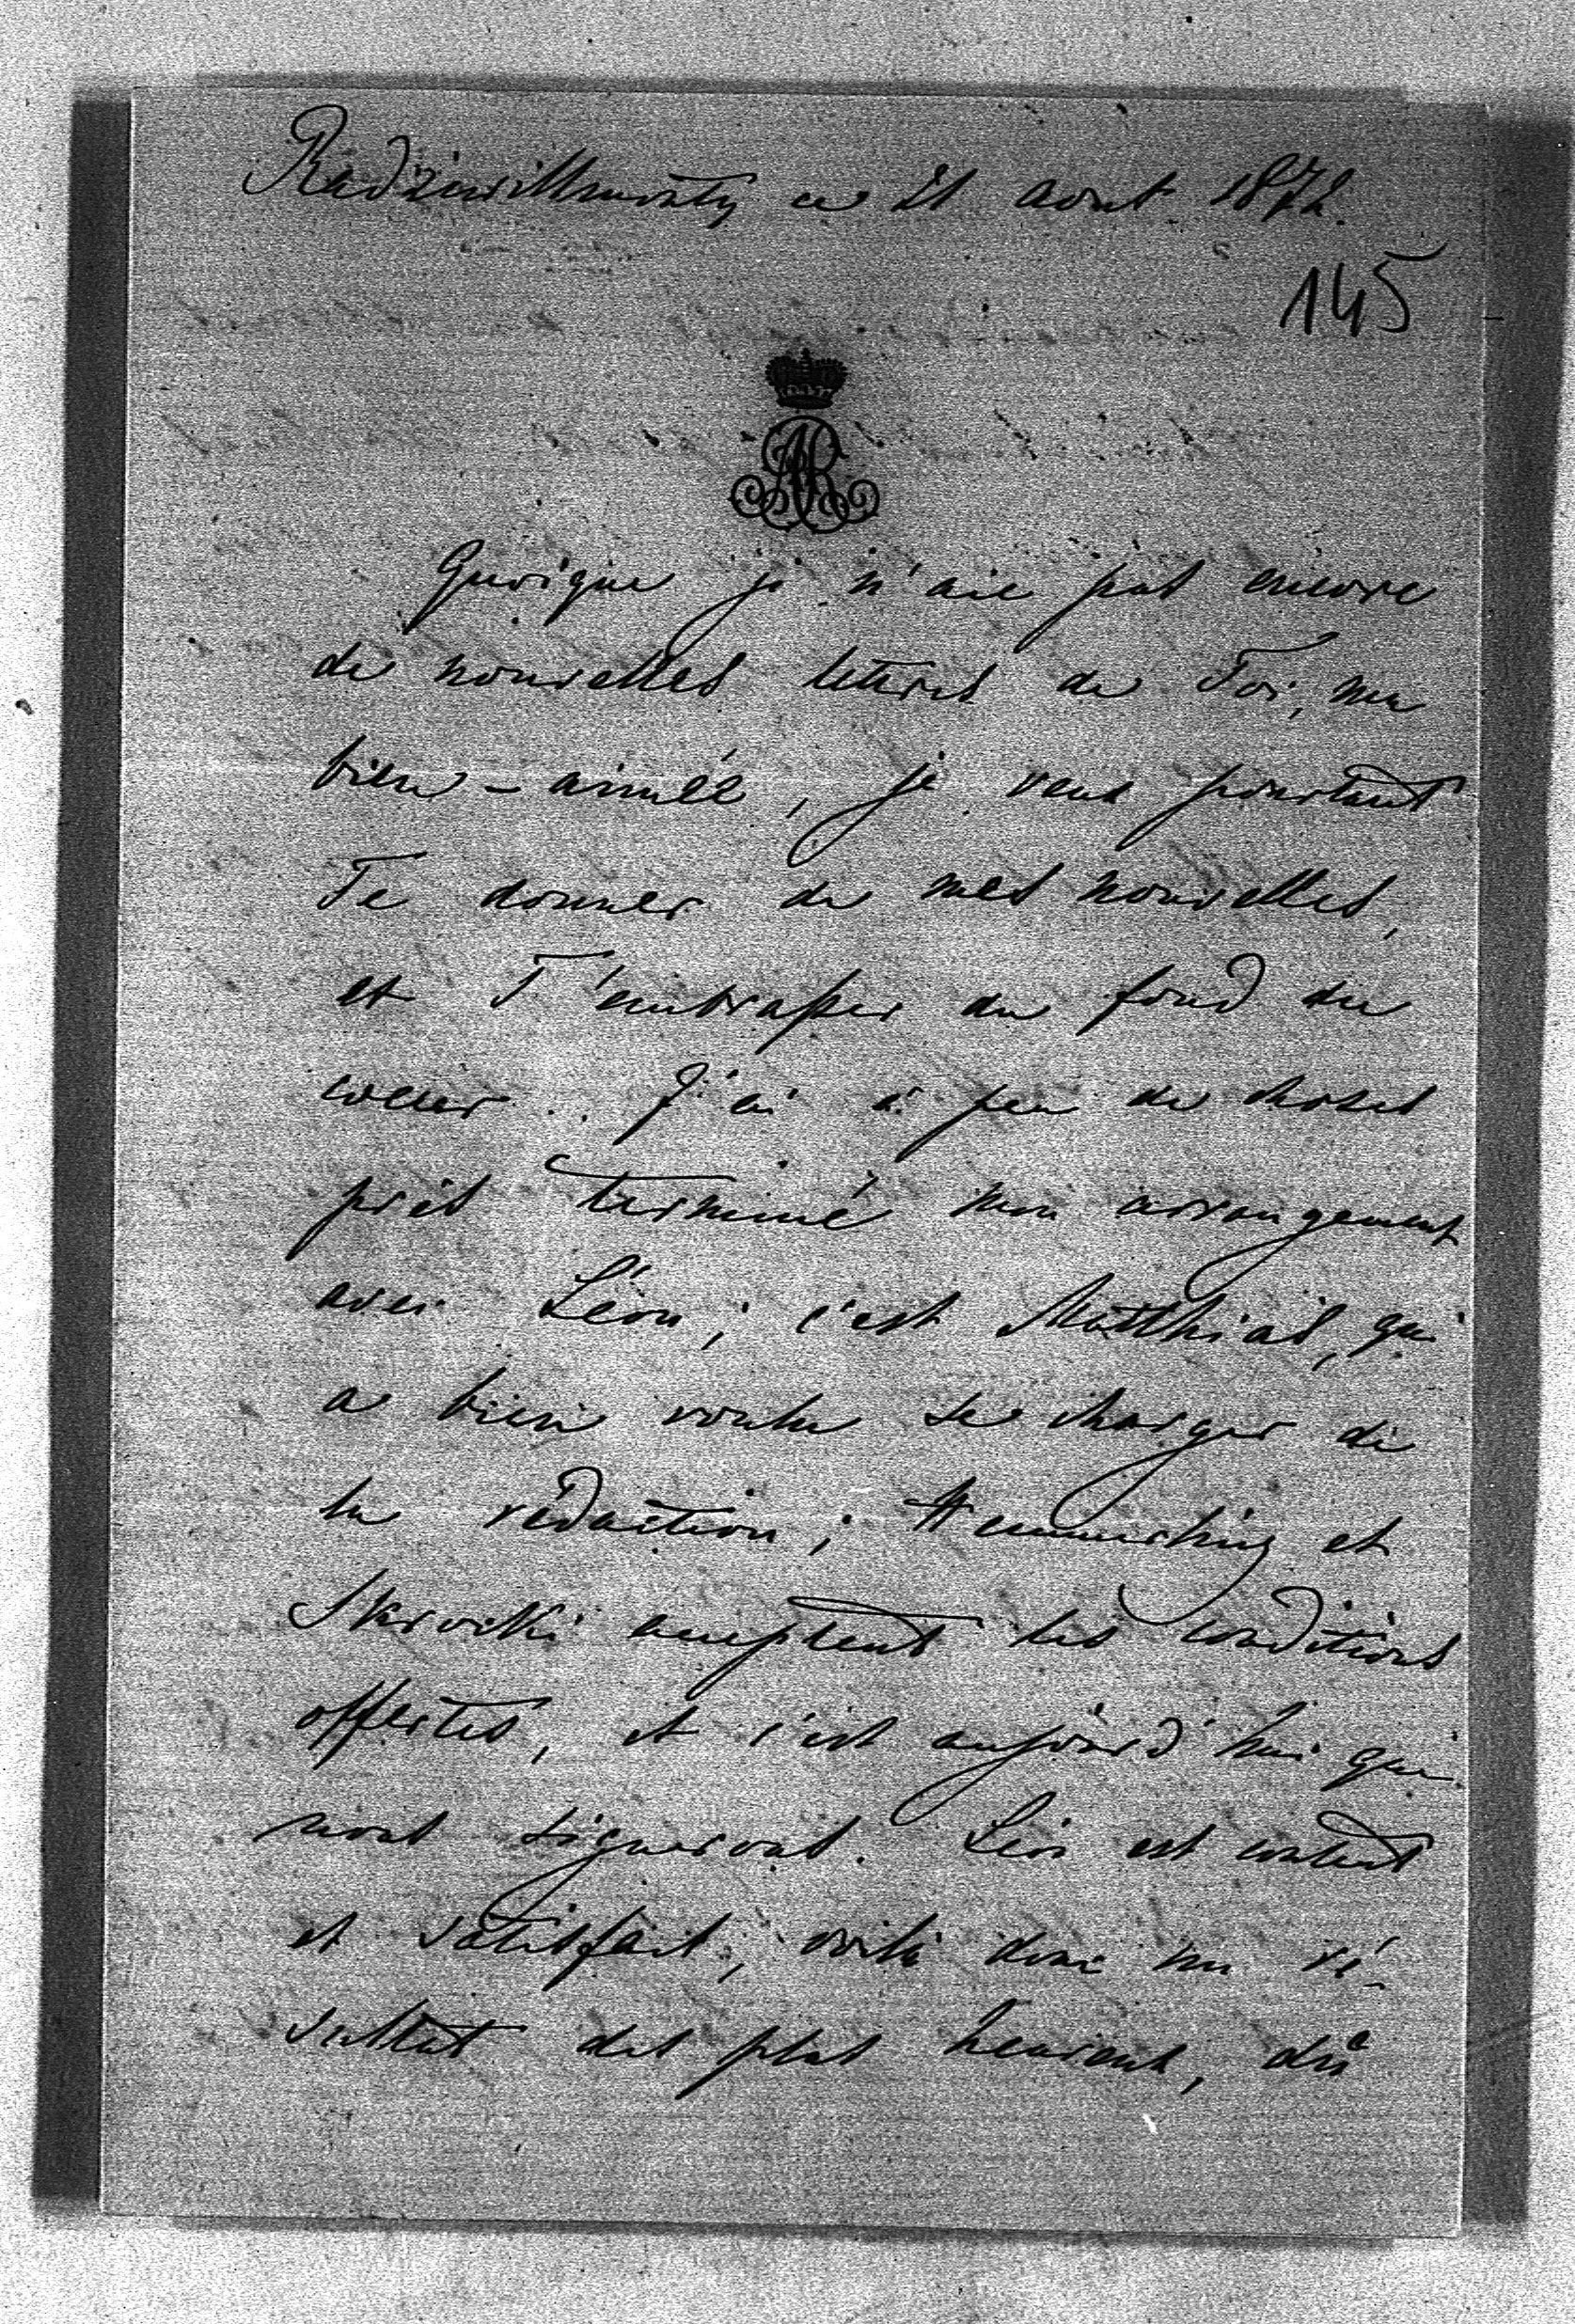 Radziwillmonty ce 21 aout 1872.
145
AR
Quoique je n'aie pas encore
de nouvelles lettres de Toi, ma
bien-aimée, je veux pourtant
Te donner de mes nouvelles,
et T'embrasser du fond du
coeur.. J'ai à peu de choses
près terminé mon arrangement
avec Léon; c'est Matthias, qui
a bien voulu se charger de
la rédaction; et
acceptent les conditions
offertes, et c'est aujourd'hui que
nous signerons. Léon est content
et satisfait, voilà donc un ré-
sultat des plus heureux, dû